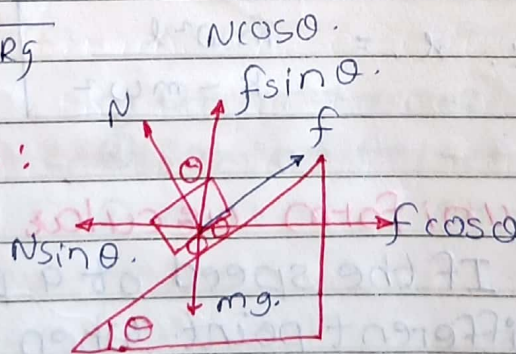 Rg
Ncosθ.
fsinθ.
N
f
θ
:
fcosθ
Nsinθ.
θ
mg.
θ